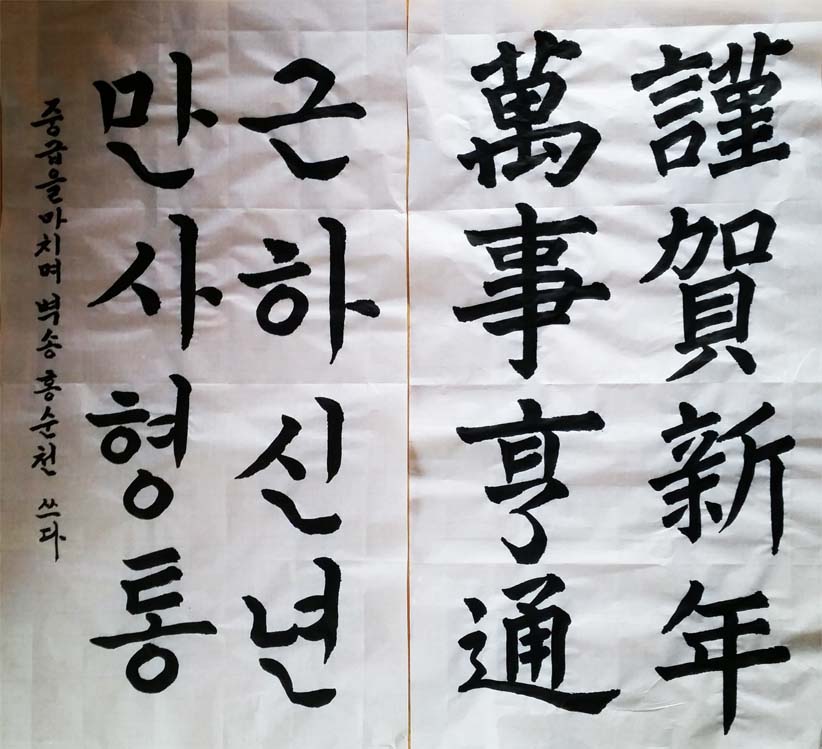 謹賀新年
萬事亨通
근하신년
만사형통
중급을마치며 벽송 홍순천 쓰다